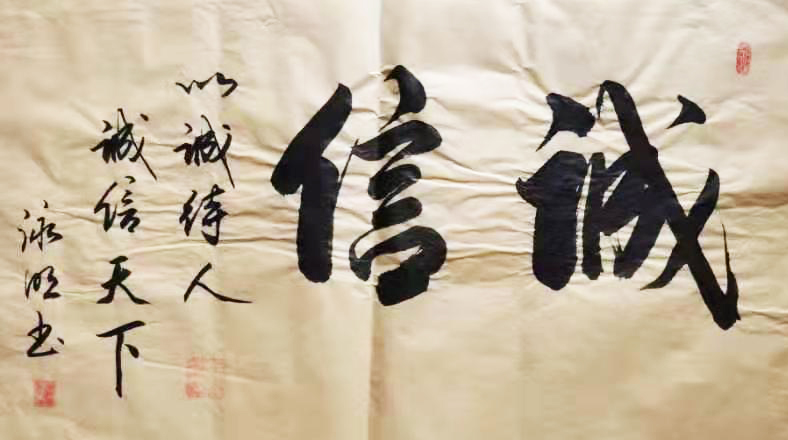 诚信
以诚待人
诚信天下
泳旭书